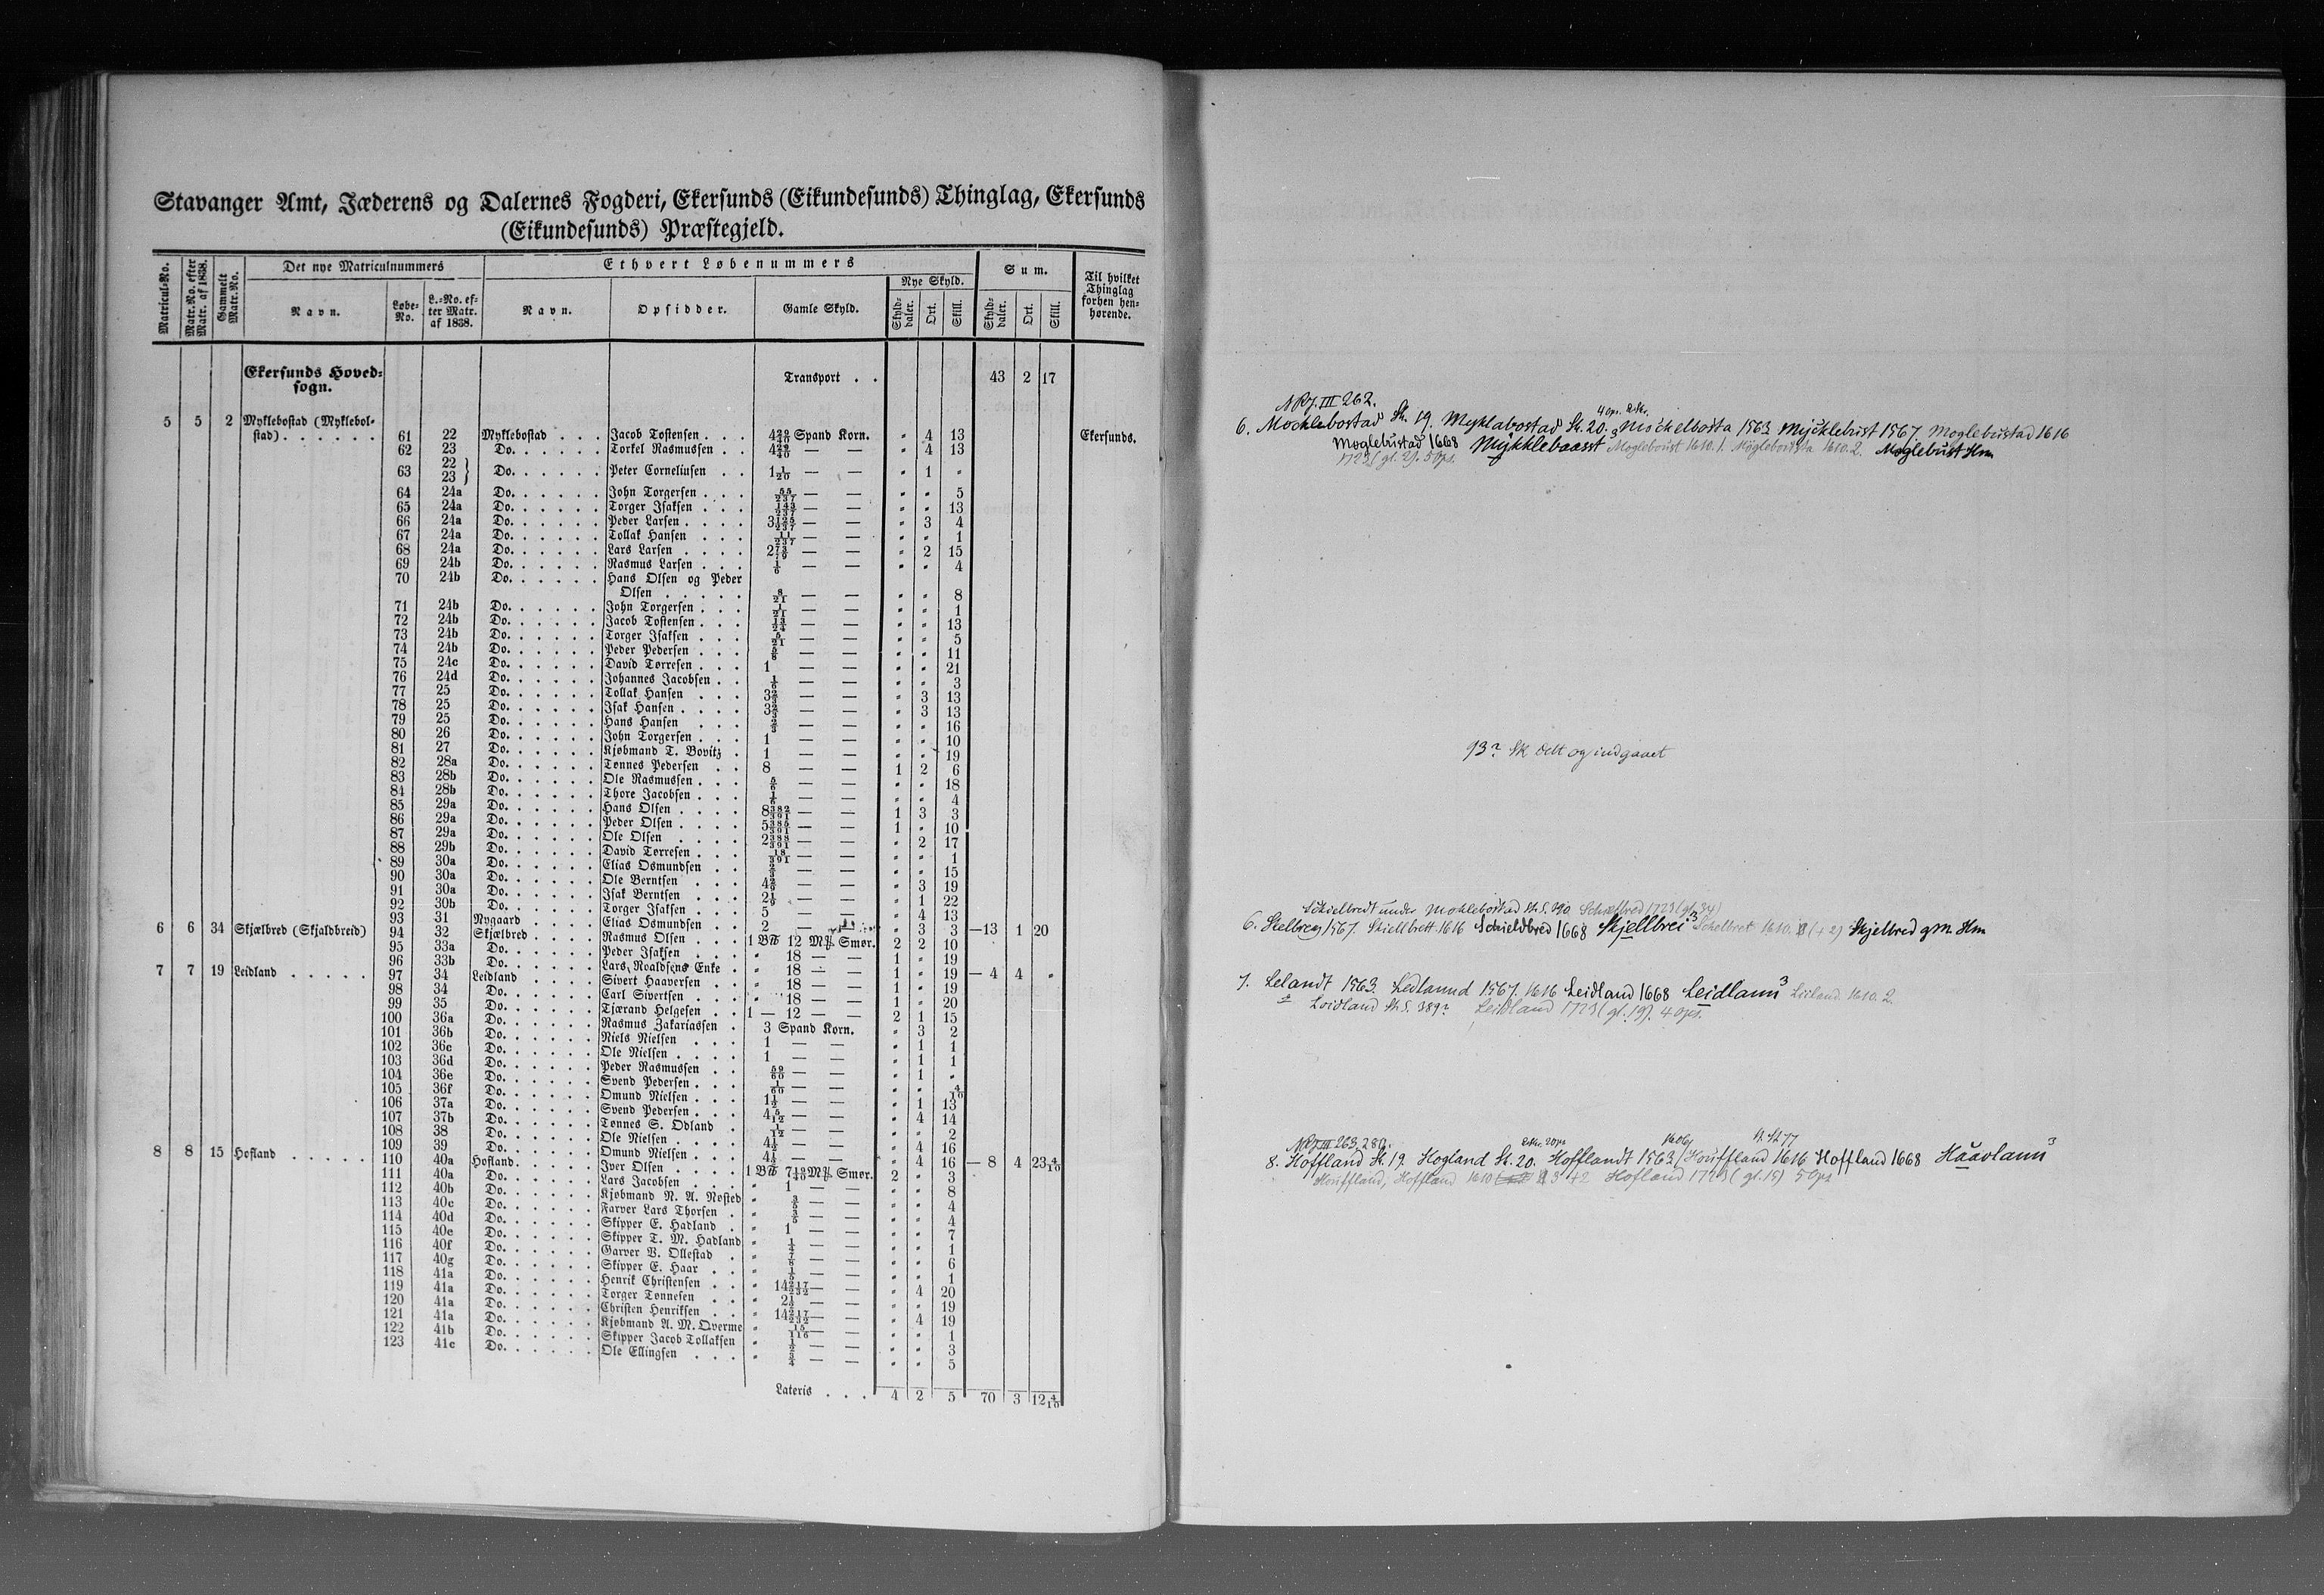 Stavanger Amt, Jæderens og Dalernes Fogderi, Ekersunds (Eikundesunds) Thinglag, Ekersunds
(Eikundesunds) Præstegjeld.
Matricul-No. | Matr.-No. efter Matr. af 1838. | Gammelt Matr.-No. | Det nye Matriculnummers | Ethvert Løbenummers | Sum. | Til hvilket Thinglag forhen henhørende.
Navn. | Løbe-No. | L.-No. efter Matr. af 1838. | Navn. | Opsidder. | Gamle Skyld. | Nye Skyld. Skylddaler. Ort. Skill. | Skylddaler. Ort. Skill.
Ekersunds Hovedsogn. Transport . . 43 2 17
5 5 2 Myklebostad (Myklebol-
stad) . . . . . . 61 22 Myklebostad . . . Jacob Tostensen . . . 4 29/40 Spand Korn. " 4 13 Ekersunds.
62 23 Do. . . . . . Torkel Rasmussen . . 4 29/40 — — " 4 13
63 22 23 } Do. . . . . . Peter Corneliusen . . 1 1/20 — — " 1 "
64 24a Do. . . . . . John Torgersen . . . 55/237 — — " " 5
65 24a Do. . . . . . Torger Isaksen . . . 143/237 — — " " 13
66 24a Do. . . . . . Peder Larsen . . . . 3 125/237 — — " 3 4
67 24a Do. . . . . . Tollak Hansen . . . 11/237 — — " " 1
68 24a Do. . . . . . Lars Larsen . . . . 2 73/79 — — " 2 15
69 24b Do. . . . . . Rasmus Larsen . . . 1/6 — — " " 4
70 24b Do. . . . . . Hans Olsen og Peder
Olsen . . . . . 8/21 — — " " 8
71 24b Do. . . . . . John Torgersen . . . 1/21 — — " " 1
72 24b Do. . . . . . Jacob Tostensen . . . 13/24 — — " " 13
73 24b Do. . . . . . Torger Isaksen . . . 5/21 — — " " 5
74 24b Do. . . . . . Peder Pedersen . . . 5/8 — — " " 11
75 24c Do. . . . . . David Torresen . . . 1 — — " " 21
76 24d Do. . . . . . Johannes Jacobsen . . 1/6 — — " " 3
77 25 Do. . . . . . Tollak Hansen . . . 3 2/3 — — " 3 13
78 25 Do. . . . . . Isak Hansen . . . . 3 2/3 — — " 3 13
79 25 Do. . . . . . Hans Hansen . . . 2/3 — — " " 16
80 26 Do. . . . . . John Torgersen . . . 1 — — " " 10
81 27 Do. . . . . . Kjøbmand T. Bovitz . 1 — — " " 19
82 28a Do. . . . . . Tønnes Pedersen . . 8 — — 1 2 6
83 28b Do. . . . . . Ole Rasmussen . . . 5/6 — — " " 18
84 28b Do. . . . . . Thore Jacobsen . . . 1/6 — — " " 4
85 29a Do. . . . . . Hans Olsen . . . . 8 382/391 — — 1 3 3
86 29a Do. . . . . . Peder Olsen . . . . 5 385/391 — — 1 " 10
87 29a Do. . . . . . Ole Olsen . . . . 2 388/391 — — " 2 17
88 29b Do. . . . . . David Torresen . . . 18/391 — — " " 1
89 30a Do. . . . . . Elias Osmundsen . . 2/3 — — " " 15
90 30a Do. . . . . . Ole Berntsen . . . 4 2/9 — — " 3 19
91 30a Do. . . . . . Isak Berntsen . . . 2 1/9 — — " 1 22
92 30b Do. . . . . . Torger Isaksen . . . 5 — — " 4 13
93 31 Nygaard . . . . Elias Osmundsen . . 2 — " 3 3 —13 1 20
6 6 34 Skjælbred (Skjaldbreid) 94 32 Skjælbred . . . . Rasmus Olsen . . . 1 B℔ 12 M℔ Smør. 2 2 10
95 33a Do. . . . . . Peder Isaksen . . . " 18 — — 1 " 19
96 33b Do. . . . . . Lars Roaldsens Enke . " 18 — — 1 " 19 — 4 4 "
7 7 19 Leidland . . . . . 97 34 Leidland . . . . Sivert Haaversen . . " 18 — — 1 " 19
98 34 Do. . . . . . Carl Sivertsen . . . " 18 — — 1 " 20
99 35 Do. . . . . . Tjærand Helgesen . . 1 — 12 — — 2 1 15
100 36a Do. . . . . . Rasmus Zakariassen . 3 Spand Korn. " 3 2
101 36b Do. . . . . . Niels Nielsen . . . 1 — — " 1 1
102 36c Do. . . . . . Ole Nielsen . . . . 1 — — " 1 1
103 36d Do. . . . . . Peder Rasmussen . . 59/60 — — " 1 "
104 36e Do. . . . . . Svend Pedersen . . . 1/60 — — " " 4/10
105 36f Do. . . . . . Omund Nielsen . . . 1 1/2 — — " 1 13
106 37a Do. . . . . . Svend Pedersen . . . 4 5/12 — — " 4 14
107 37b Do. . . . . . Tønnes S. Odland . 1/12 — — " " 2
108 38 Do. . . . . . Ole Nielsen . . . . 4 1/2 — — " 4 16
109 39 Do. . . . . . Omund Nielsen . . . 4 1/2 — — " 4 16 — 8 4 23 4/10
8 8 15 Hofland . . . . . 110 40a Hofland . . . . Iver Olsen . . . . 1 B℔ 7 13/40 M℔ Smør. 2 " 3
111 40a Do. . . . . . Lars Jacobsen . . . " 1 — — " " 8
112 40b Do. . . . . . Kjøbmand N. A. Nosted " 3/5 — — " " 4
113 40c Do. . . . . . Farver Lars Thorsen . " 3/5 — — " " 4
114 40d Do. . . . . . Skipper E. Hadland . " 1 — — " " 7
115 40e Do. . . . . . Skipper T. M. Hadland " 1/4 — — " " 1
116 40f Do. . . . . . Garver B. Ollestad . " 7/8 — — " " 6
117 40g Do. . . . . . Skipper E. Haar . . " 1/5 — — " " 1
118 41a Do. . . . . . Henrik Christensen . . " 14 217/232 — — " 4 20
119 41a Do. . . . . . Torger Tønnesen . . " 2 1/4 — — " " 19
120 41a Do. . . . . . Christen Henriksen . . " 14 217/232 — — " 4 19
121 41a Do. . . . . . Kjøbmand A. M. Qverme " 15/116 — — " " 1
122 41b Do. . . . . . Skipper Jacob Tollaksen " 1/2 — — " " 3
123 41c Do. . . . . . Ole Ellingsen . . . " 3/4 — — " " 5
Lateris . . . 4 2 5 70 3 12 4/10
NRJ. III 262.
6. Mochlabostad St. 19. Myklabostad St. 20. Mochelbosta 1563 Mycklebust 1567. Moglebustad 1616
Moglebustad 1668 Mykklebaasst Mogleboust 1610. 1. Møglebousta 1610. 2. Moglebust Hm
1723 (gl. 2). 5 Ops.
93? Sk delt og indgaaet
Schielbredt under Mochlebostad St. S. 390 Schælbred 1723 (gl. 34)
6. Skelbrey 1567. Skiellbrett 1616 Schieldbred 1668 Skjellbrei 3 Schelbret 1610. (+2) Skjelbred gm. Hm
7. Lelandt 1563. Ledlannd 1567. 1616 Leidland 1668 Leidlann 3 Leiland. 1610. 2.
Loidland St. S. 389? Leidland 1723 (gl. 19). 4 Ops.
NRJ. III 263, 280.
8. Hoffland St. 19. Hogland St. 20. Hofflandt 1563 / Houffland 1616 Hoffland 1668 Haavlann 3
Houffland, Hoffland 1610 +2 Hofland 1723 (gl. 15) 5 Ops